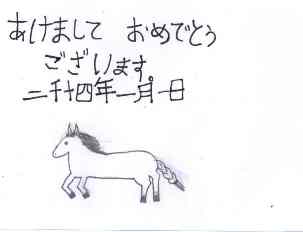 あけまして おめでとう
ございます。
二千十四年一月一日